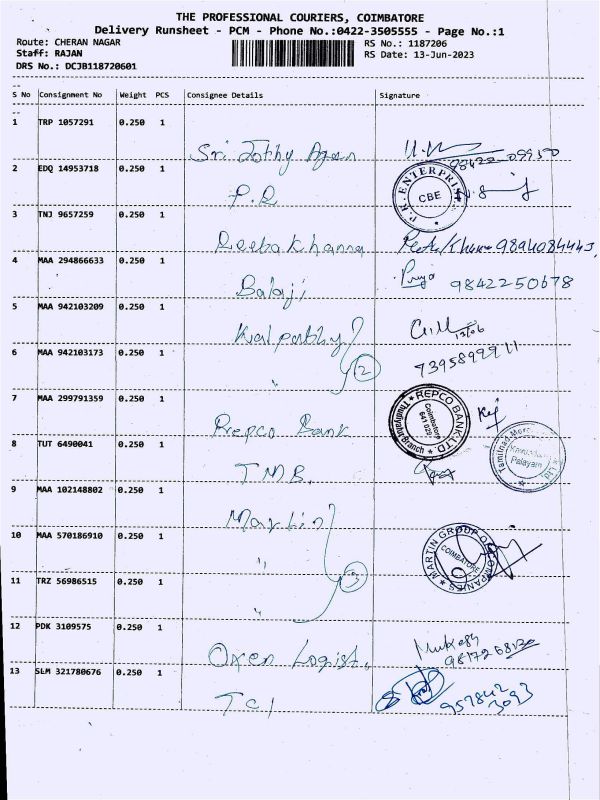 THE PROFESSIONAL COURIERS, COIMBATORE
Delivery Runsheet - PCM - Phone No.:0422-3505555 - Page No.:1
Route: CHERAN NAGAR RS No.: 1187206
Staff: RAJAN RS Date: 13-Jun-2023
DRS No.: DCJB118720601
S No Consignment No Weight PCS Consignee Details Signature
1 TRP 1057291 0.250 1
Sri Jothy Agen 98422 09950
2 EDQ 14953718 0.250 1
P.R P.R. ENTERPRISE CBE
3 TNJ 9657259 0.250 1
Reeba Khanna 9894084443
4 MAA 294866633 0.250 1
Balaji Priya 9842250678
5 MAA 942103209 0.250 1
Kalpathy 13/06
6 MAA 942103173 0.250 1
" 2 7395899911
7 MAA 299791359 0.250 1
Repco Bank REPCO BANK LTD. Thudiyalur Branch Coimbatore 641 029
8 TUT 6490041 0.250 1
TMB. Tamilnad Merc Palayam
9 MAA 102148802 0.250 1
Martin
10 MAA 570186910 0.250 1
" MARTIN GROUP OF COMPANIES COIMBATORE
11 TRZ 56986515 0.250 1
" 3
12 PDK 3109575 0.250 1
Oxen Logist. Mukesh
13 SLM 321780676 0.250 1
TCI 957842 3093